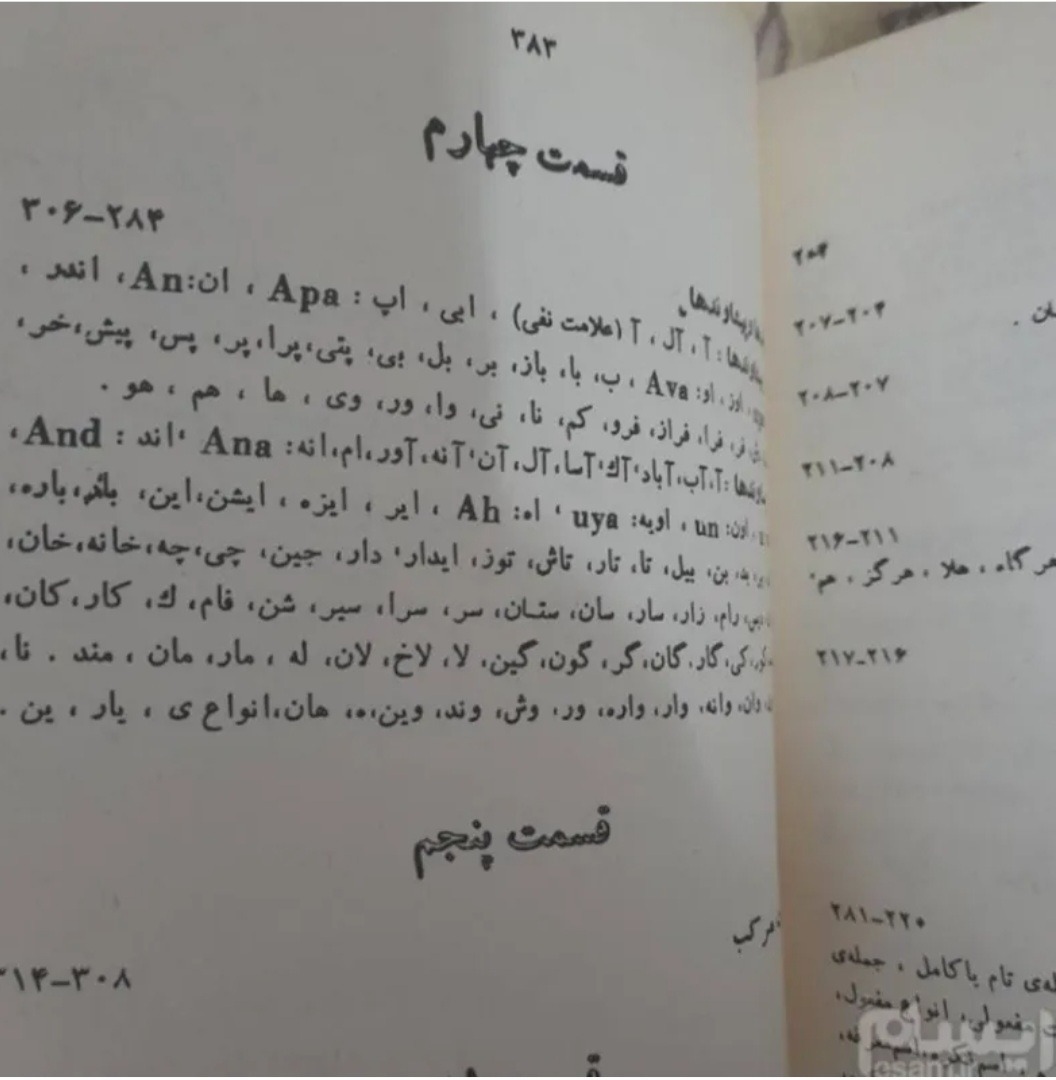 ۳۸۳
قسمت چهارم
۲۸۴-۳۰۶
پساوندها
آ، آل، آ (علامت نفی)، ابی، اپ: Apa، ان: An، اندر،
اوز، او: Ava، ب، با، باز، بر، بل، بی، پتی، پرا، پر، پس، پیش، خر،
فر، فرا، فراز، فرو، کم، نا، نی، وا، ور، وی، ها، هم، هو.
آ، آب، آباد، آك، آسا، آل، آن، آنه، آور، ام، انه: Ana، اند: And،
اون: un، اویه: uya، اه: Ah، ایر، ایزه، ایشن، این، باره،
بد، بن، بیل، تا، تار، تاش، توز، ایدار، دار، جین، چی، چه، خانه، خان،
رام، زار، سار، سان، ستان، سر، سرا، سیر، شن، فام، ك، کار، کان،
کی، گار، گان، گر، گون، گین، لا، لاخ، لان، له، مار، مان، مند. نا،
وان، وانه، وار، واره، ور، وش، وند، وین، ه، هان، انواع ی، یار، ین.
قسمت پنجم
مرکب
۳۰۸-۳۱۴
۲۰۴-۲۰۷
۲۰۷-۲۰۸
۲۰۸-۲۱۱
۲۱۱-۲۱۶
هر گاه، هلا، هرگز، هم
۲۱۶-۲۱۷
۲۲۰-۲۸۱
تام یا کامل، جمله‌ی
مفعولی، انواع مفعول،
ایسام